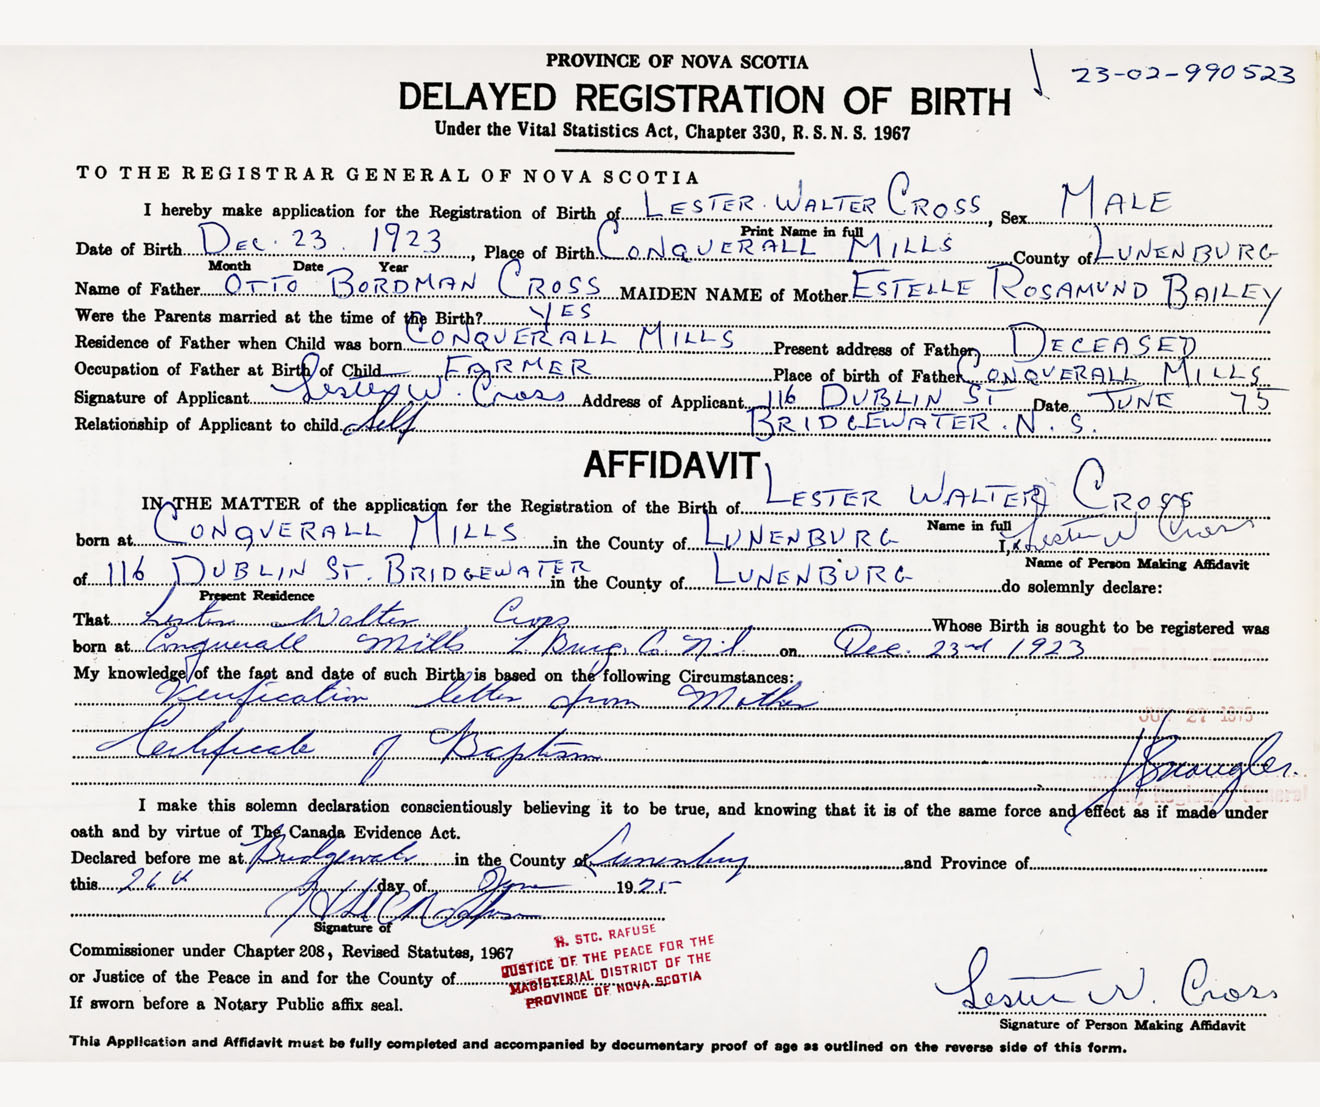 PROVINCE OF NOVA SCOTIA
23-02-990523
DELAYED REGISTRATION OF BIRTH
Under the Vital Statistics Act, Chapter 330, R. S. N. S. 1967
TO THE REGISTRAR GENERAL OF NOVA SCOTIA
I hereby make application for the Registration of Birth of LESTER WALTER CROSS, Sex MALE
Print Name in full
Date of Birth DEC. 23. 1923, Place of Birth CONQUERALL MILLS County of LUNENBURG
Month Date Year
Name of Father OTTO BORDMAN CROSS MAIDEN NAME of Mother ESTELLE ROSAMUND BAILEY
Were the Parents married at the time of the Birth? YES
Residence of Father when Child was born CONQUERALL MILLS Present address of Father DECEASED
Occupation of Father at Birth of Child FARMER Place of birth of Father CONQUERALL MILLS
Signature of Applicant Lester W. Cross Address of Applicant 116 DUBLIN ST Date JUNE 75
Relationship of Applicant to child Self BRIDGEWATER. N. S.
AFFIDAVIT
IN THE MATTER of the application for the Registration of the Birth of LESTER WALTER CROSS
Name in full
born at CONQUERALL MILLS in the County of LUNENBURG I, x Lester W Cross
Name of Person Making Affidavit
of 116 DUBLIN ST. BRIDGEWATER in the County of LUNENBURG do solemnly declare:
Present Residence
That Lester Walter Cross Whose Birth is sought to be registered was
born at Conquerall Mills L. Burg. Co. N.S. on Dec. 23rd 1923
FILED
My knowledge of the fact and date of such Birth is based on the following Circumstances:
Verification letter from Mother
JUN 27 1975
Certificate of Baptism
I make this solemn declaration conscientiously believing it to be true, and knowing that it is of the same force and effect as if made under
oath and by virtue of The Canada Evidence Act.
Declared before me at Bridgewater in the County of Lunenburg and Province of
this 26th day of June 1975
Signature of
Commissioner under Chapter 208, Revised Statutes, 1967
or Justice of the Peace in and for the County of
If sworn before a Notary Public affix seal.
H. STC. RAFUSE
JUSTICE OF THE PEACE FOR THE
MAGISTERIAL DISTRICT OF THE
PROVINCE OF NOVA SCOTIA
Lester W. Cross
Signature of Person Making Affidavit
This Application and Affidavit must be fully completed and accompanied by documentary proof of age as outlined on the reverse side of this form.